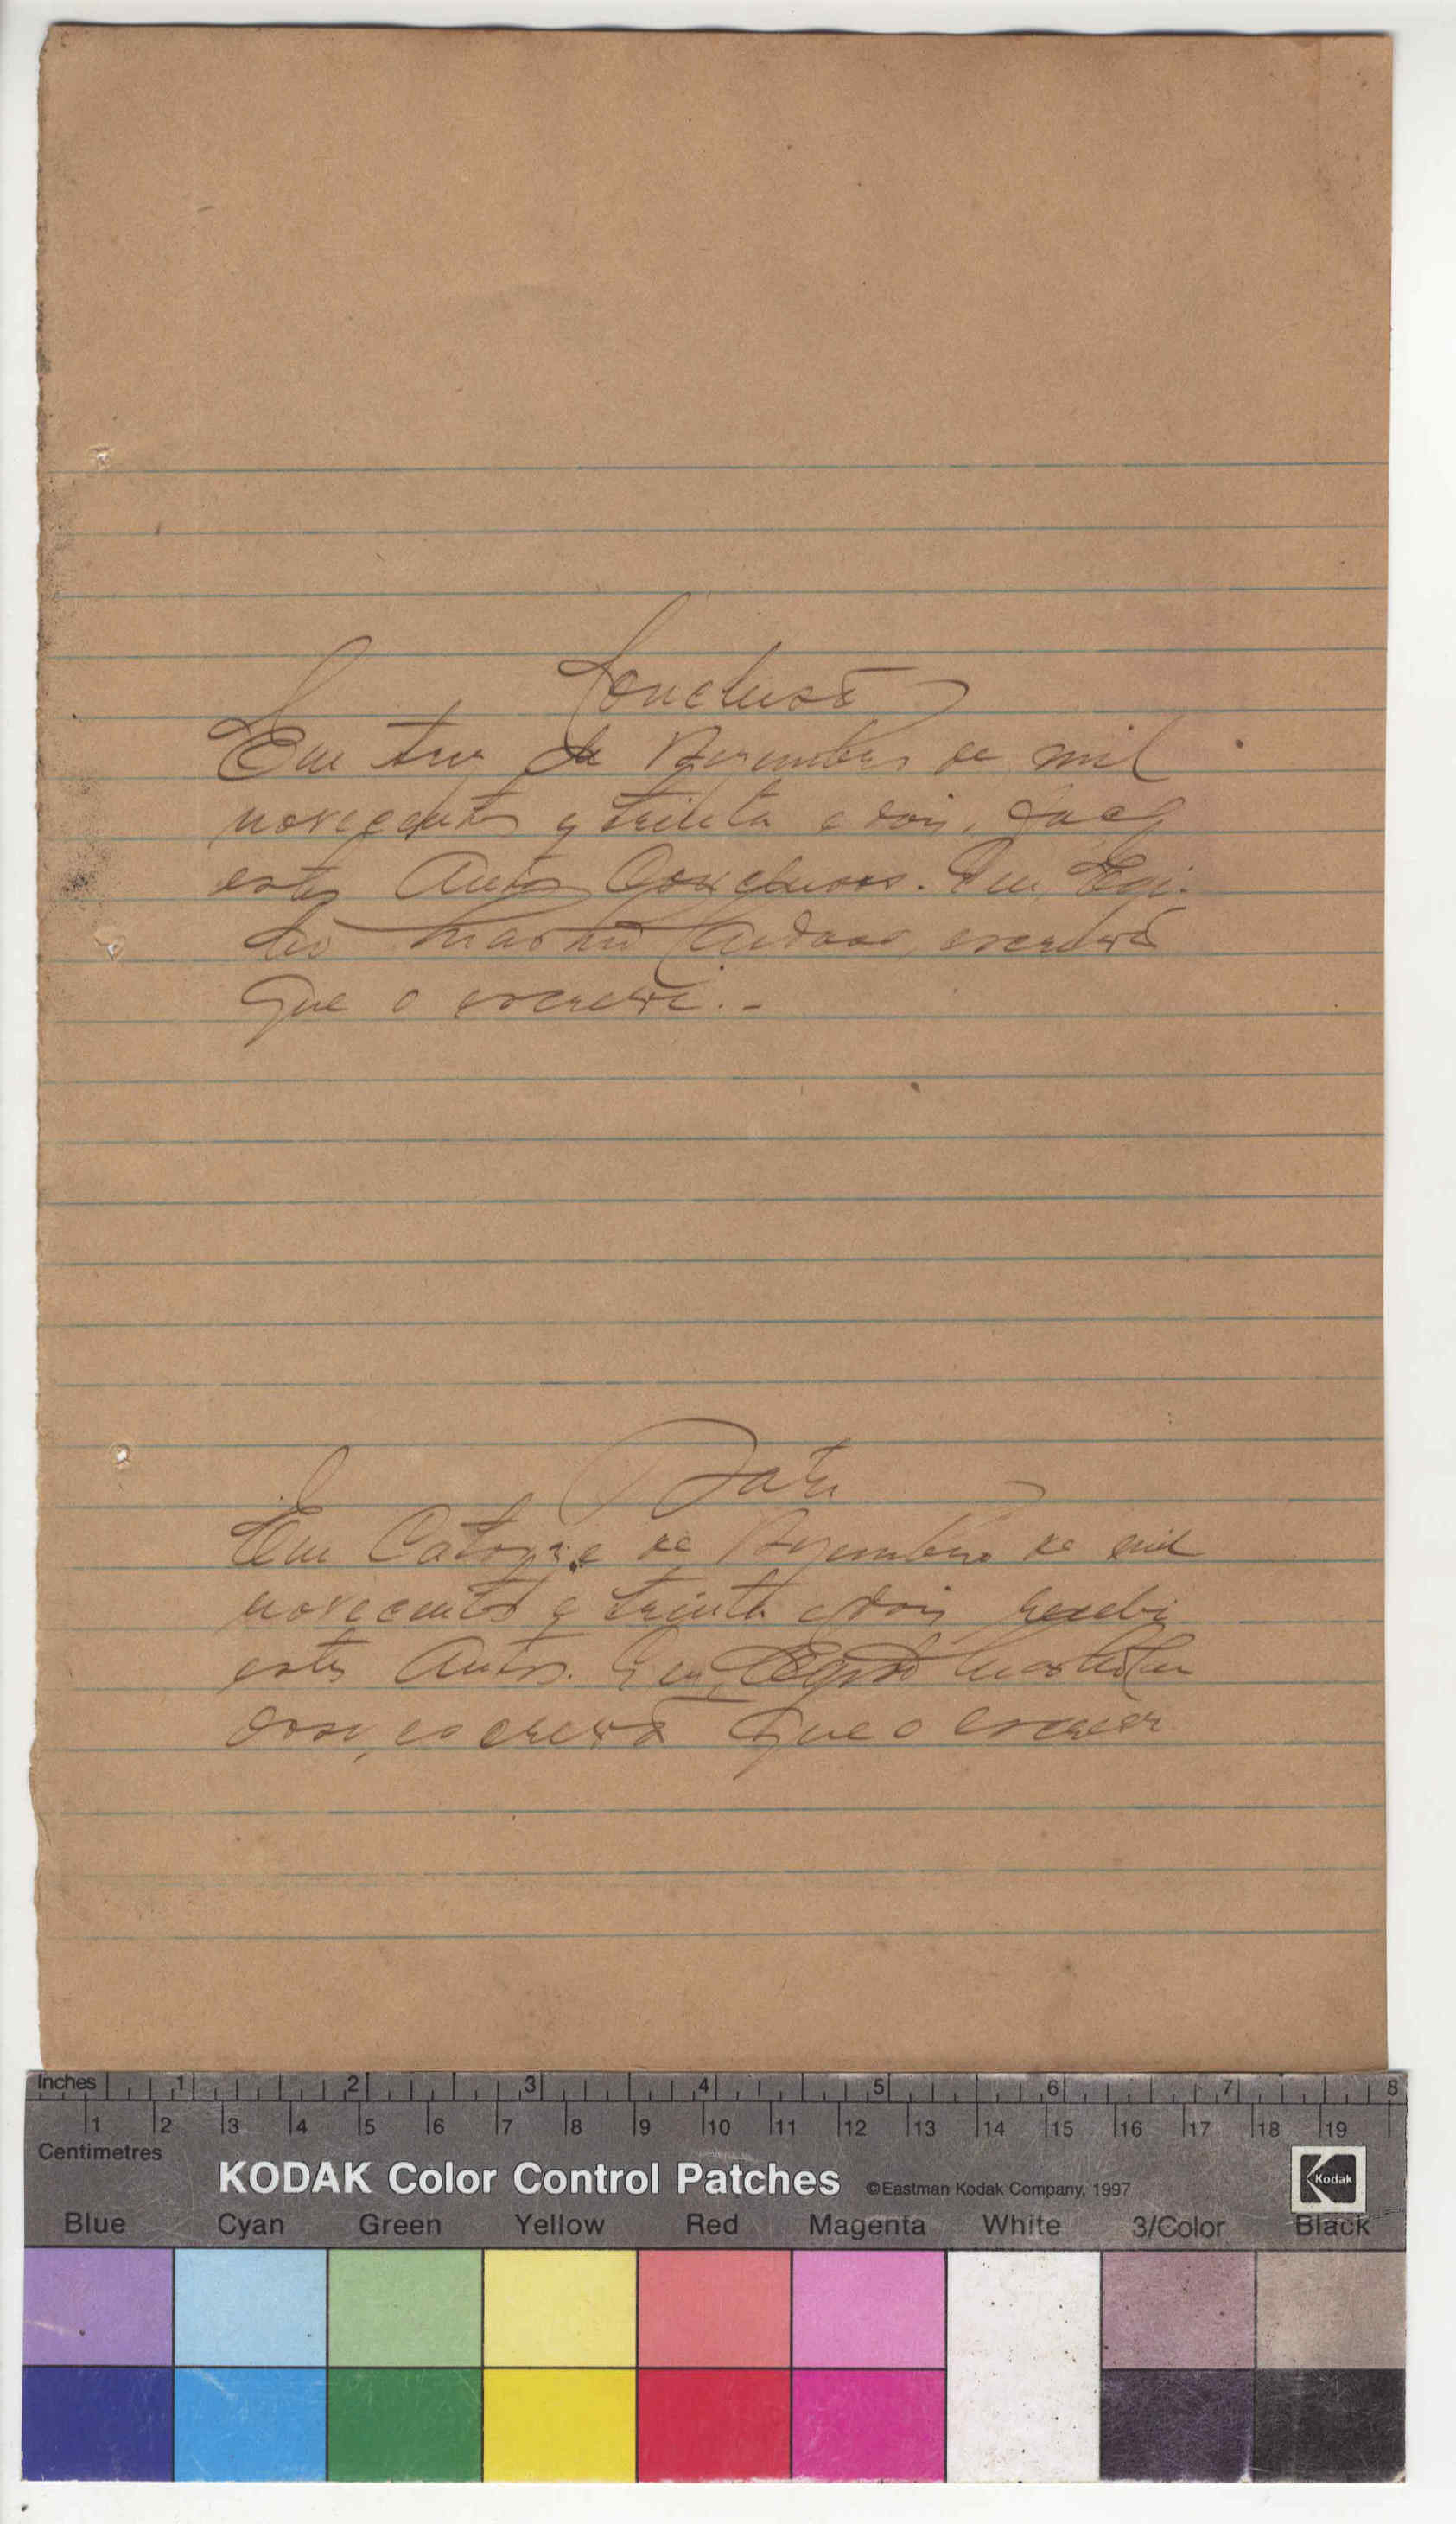 Conclusão
Em tres de Dezembro de mil
novecentos e trinta e dois, faço
estes Autos Conclusos. Eu, Egi-
dio Cardoso, escrivão
que o escrevi. -
Data
Em Catorze de Dezembro de mil
novecentos e trinta e dois recebi
estes Autos. Eu, Egidio Car
doso, escrivão que o escrevi
Inches 1 2 3 4 5 6 7 8
1 2 3 4 5 6 7 8 9 10 11 12 13 14 15 16 17 18 19
Centimetres
KODAK Color Control Patches ©Eastman Kodak Company, 1997 Kodak
Blue Cyan Green Yellow Red Magenta White 3/Color Black